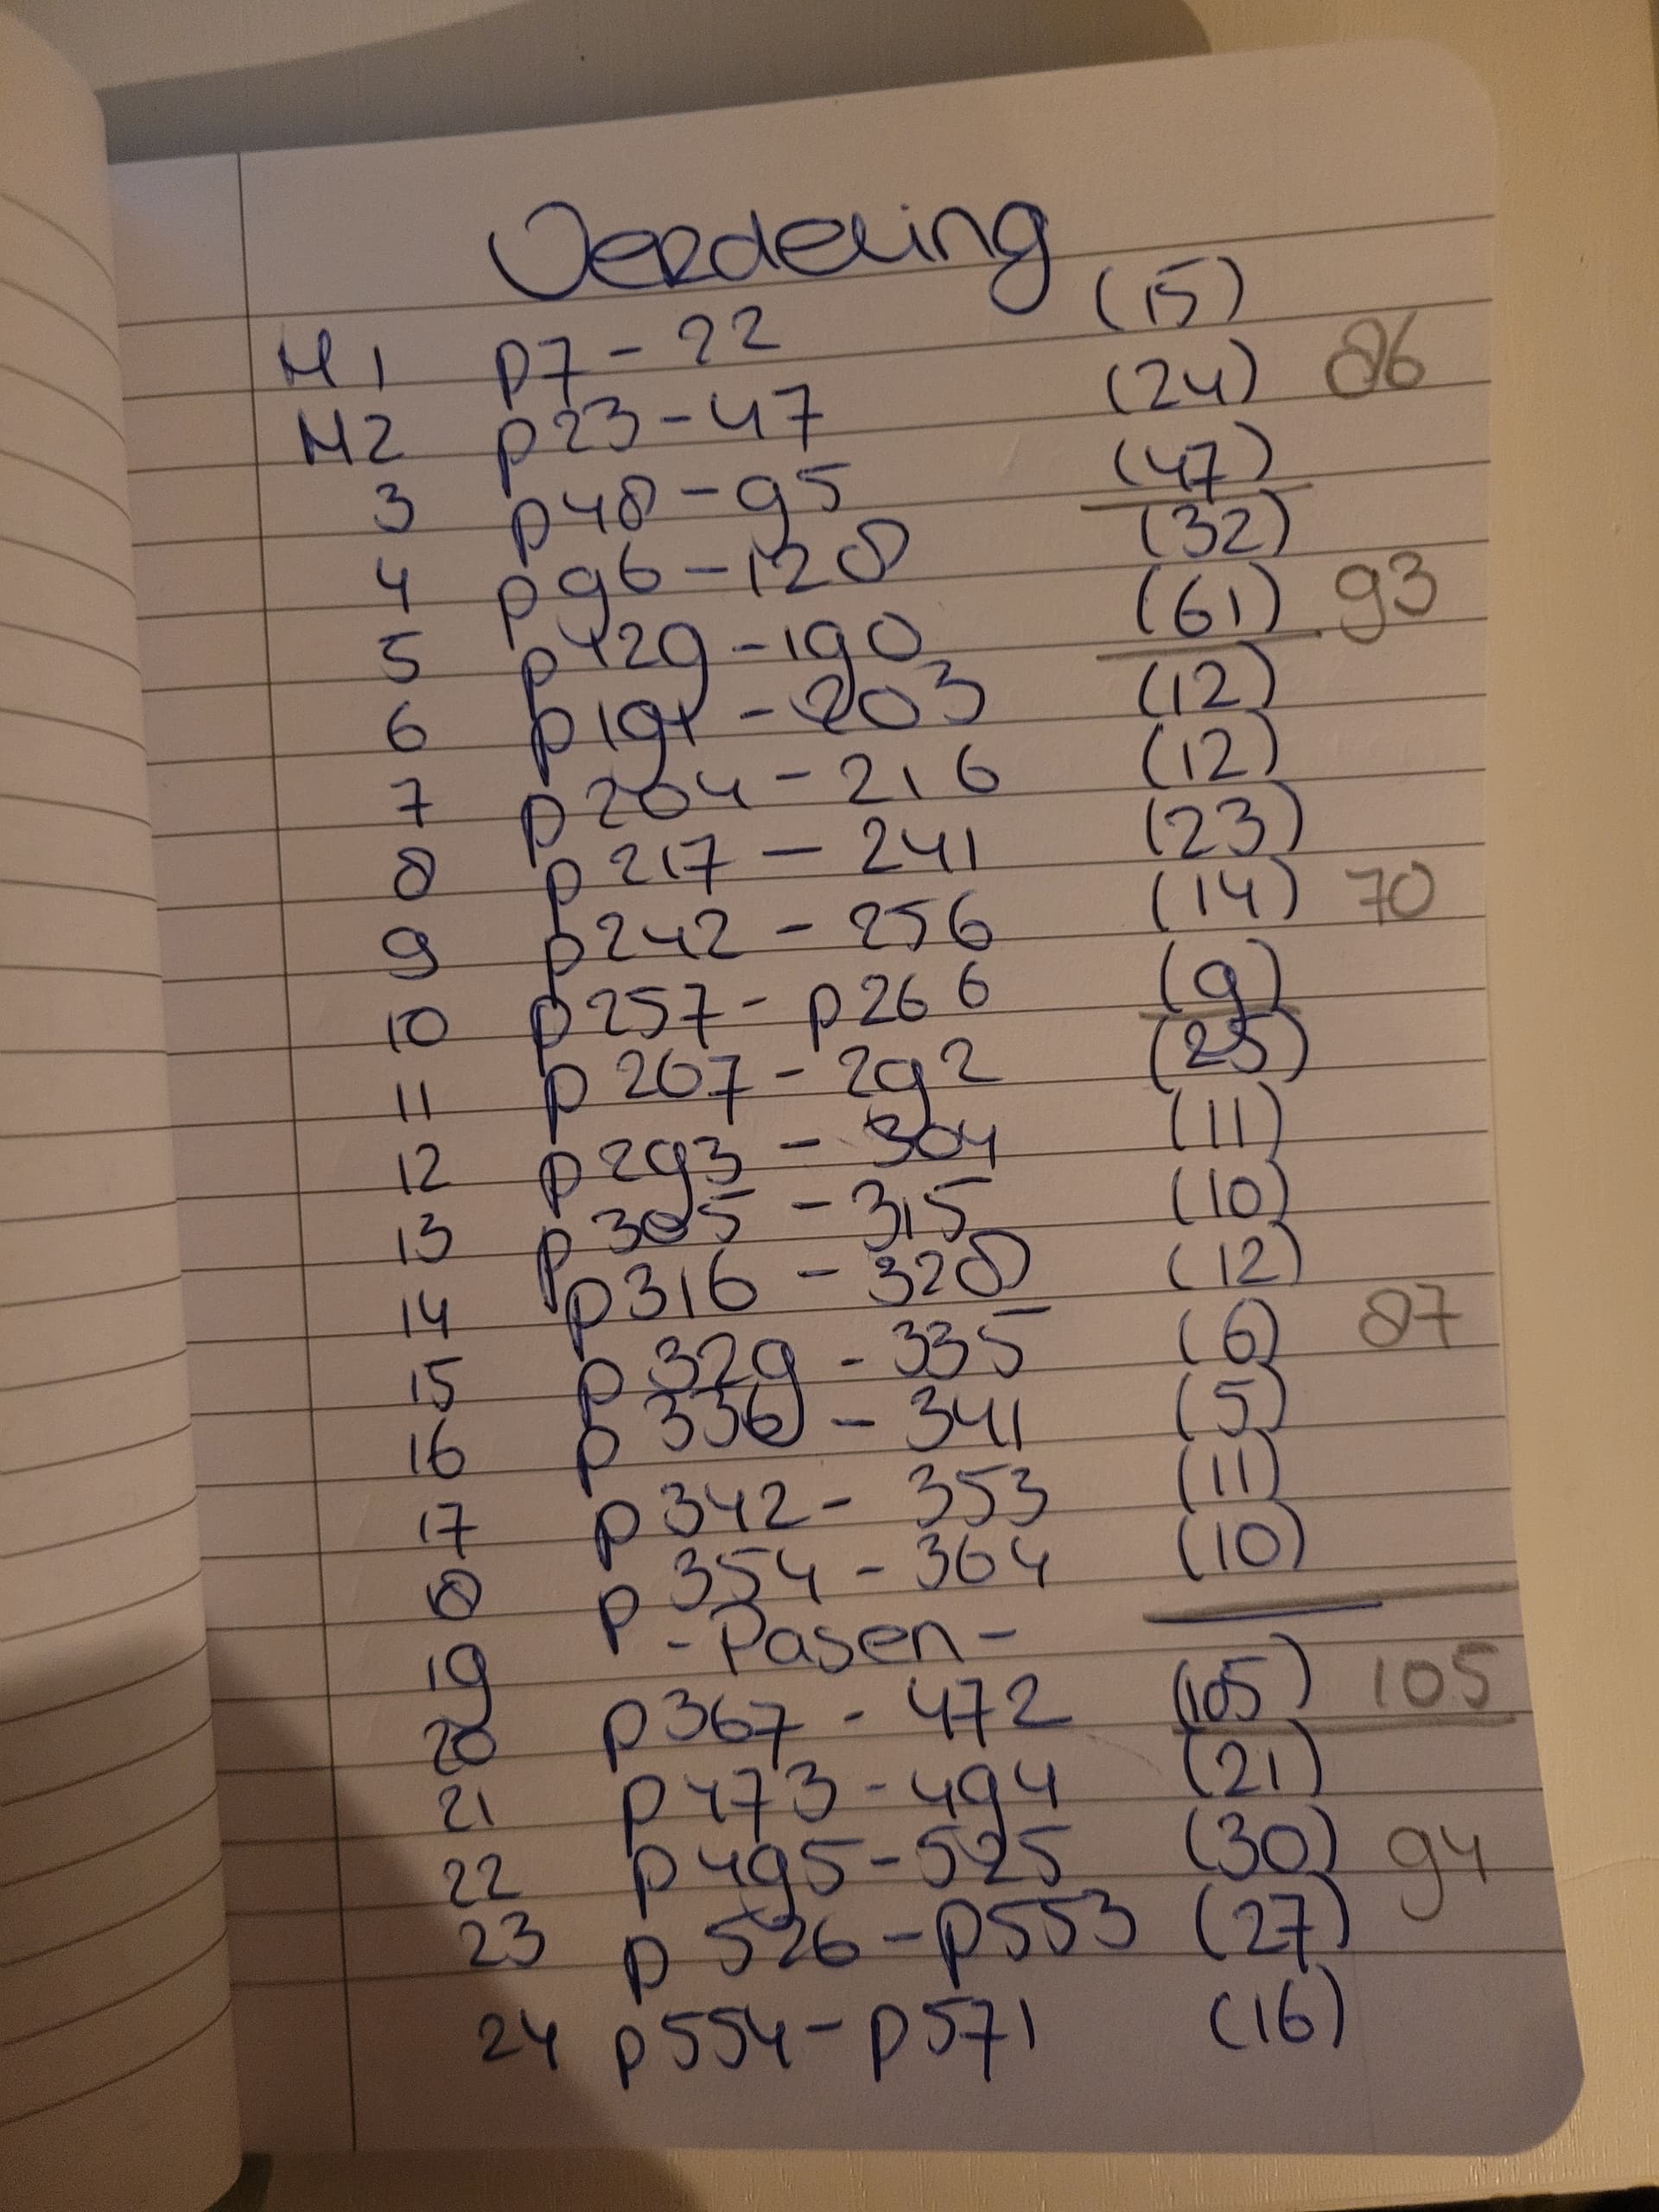 Verdeling
H1 p7 - 22 (15)
H2 p23 - 47 (24) 86
3 p48 - 95 (47)
4 p96 - 128 (32)
5 p129 - 190 (61) 93
6 p191 - 203 (12)
7 p204 - 216 (12)
8 p217 - 241 (23)
9 p242 - 256 (14) 70
10 p257 - p266 (9)
11 p267 - 292 (25)
12 p293 - 304 (11)
13 p305 - 315 (10)
14 p316 - 328 (12)
15 p329 - 335 (6) 87
16 p336 - 341 (5)
17 p342 - 353 (11)
18 p354 - 364 (10)
19 - Pasen -
20 p367 - 472 (105) 105
21 p473 - 494 (21)
22 p495 - 525 (30) 94
23 p526 - p553 (27)
24 p554 - p571 (16)